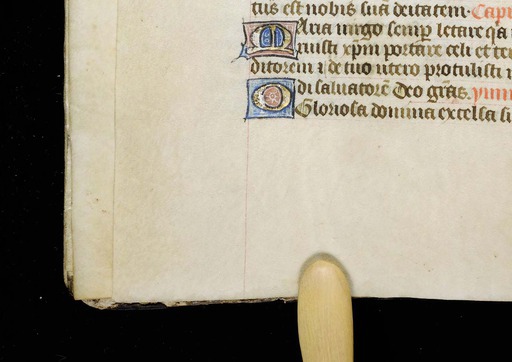 tus est nobis suā deitatem. Capi
Maria uirgo semp letare q̄ a
ruisti xp̄m portare celi et ter
ditorem ⁊ de tuo utero protulisti
di saluatorē Deo gr̄as. ymn
O Gloriosa domina excelsa su